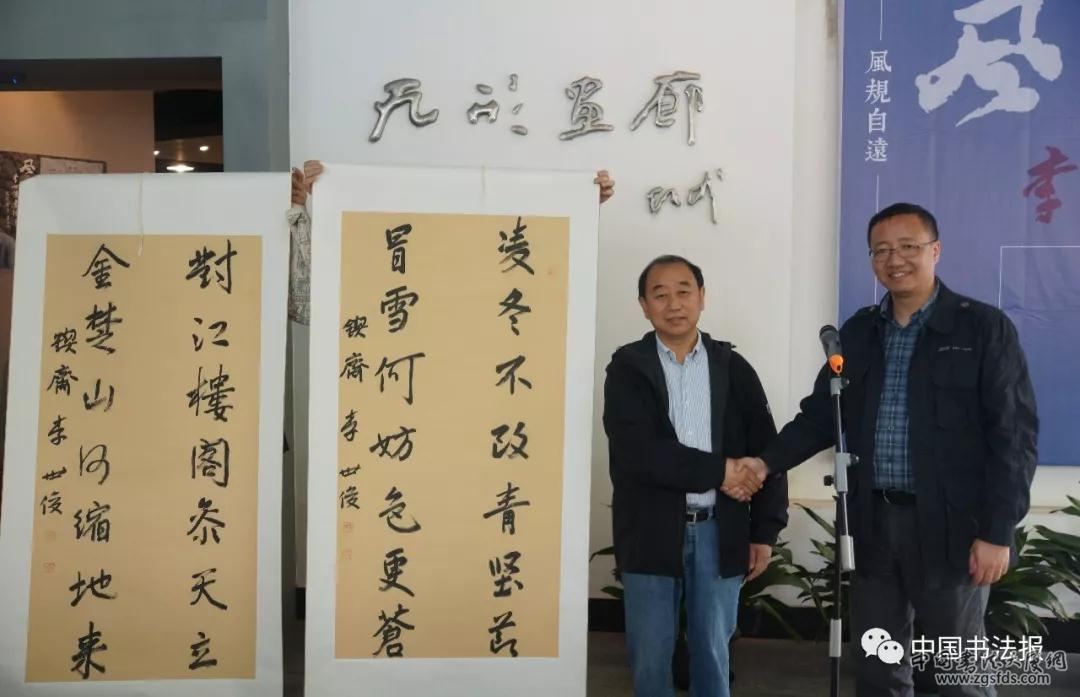 畫廊
風規自遠
风
李
對江樓閣叅天立
金楚山河缩地来
鍥齋 李世俊
凌冬不改青坚莭
冒雪何妨色更蒼
鍥齋 李世俊
中国书法报
www.zgsfds.com